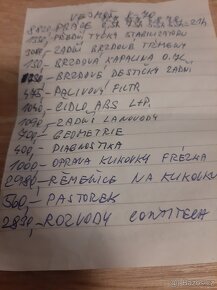 8820 PRÁCE
PŘEDNÍ TYČKY STABILIZÁTORU
ZADNÍ BRZDOVÉ TŘMENY
150 BRZDOVÁ KAPALINA 0.7L
BRZDOVÉ DESTIČKY ZADNÍ
445 PALIVOVÝ FILTR
1040 ČIDLO ABS L+P.
1090 ZADNÍ LANOVODY
700 GEOMETRIE
400,- DIAGNOSTIKA
1000 OPRAVA KLIKOVKY FRÉZKA
2980 ŘEMENICE NA KLIKOVKU
560,- PASTOREK
2830,- ROZVODY CONTITECH
Bazoš.cz